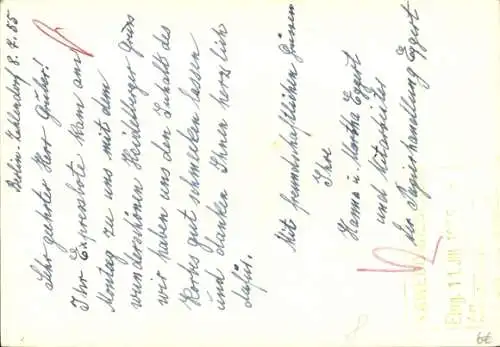 Berlin-Zehlendorf 8.7.55
Sehr geehrter Herr Guhr!
Ihr Expressbote kam am
Montag zu uns mit dem
wunderschönen Heidelberger Gruss
wir haben uns den Inhalt des
Korbes gut schmecken lassen
und danken Ihnen herzlich
dafür.
Mit freundschaftlichen Grüssen
Ihre
Hanna u. Martha Eggert
und Mitarbeiter
der Papierhandlung Eggert
Eing. 11. JULI